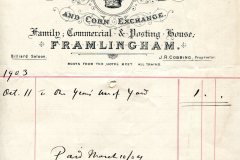 AND CORN EXCHANGE.
Family, Commercial & Posting House.
FRAMLINGHAM.
Billiard Saloon. J.R. COBBING, Proprietor.
BOOTS FROM THE HOTEL MEET ALL TRAINS.
1903
Oct. 11 To One Year's Use of Yard 1 . -
Paid March 10/04